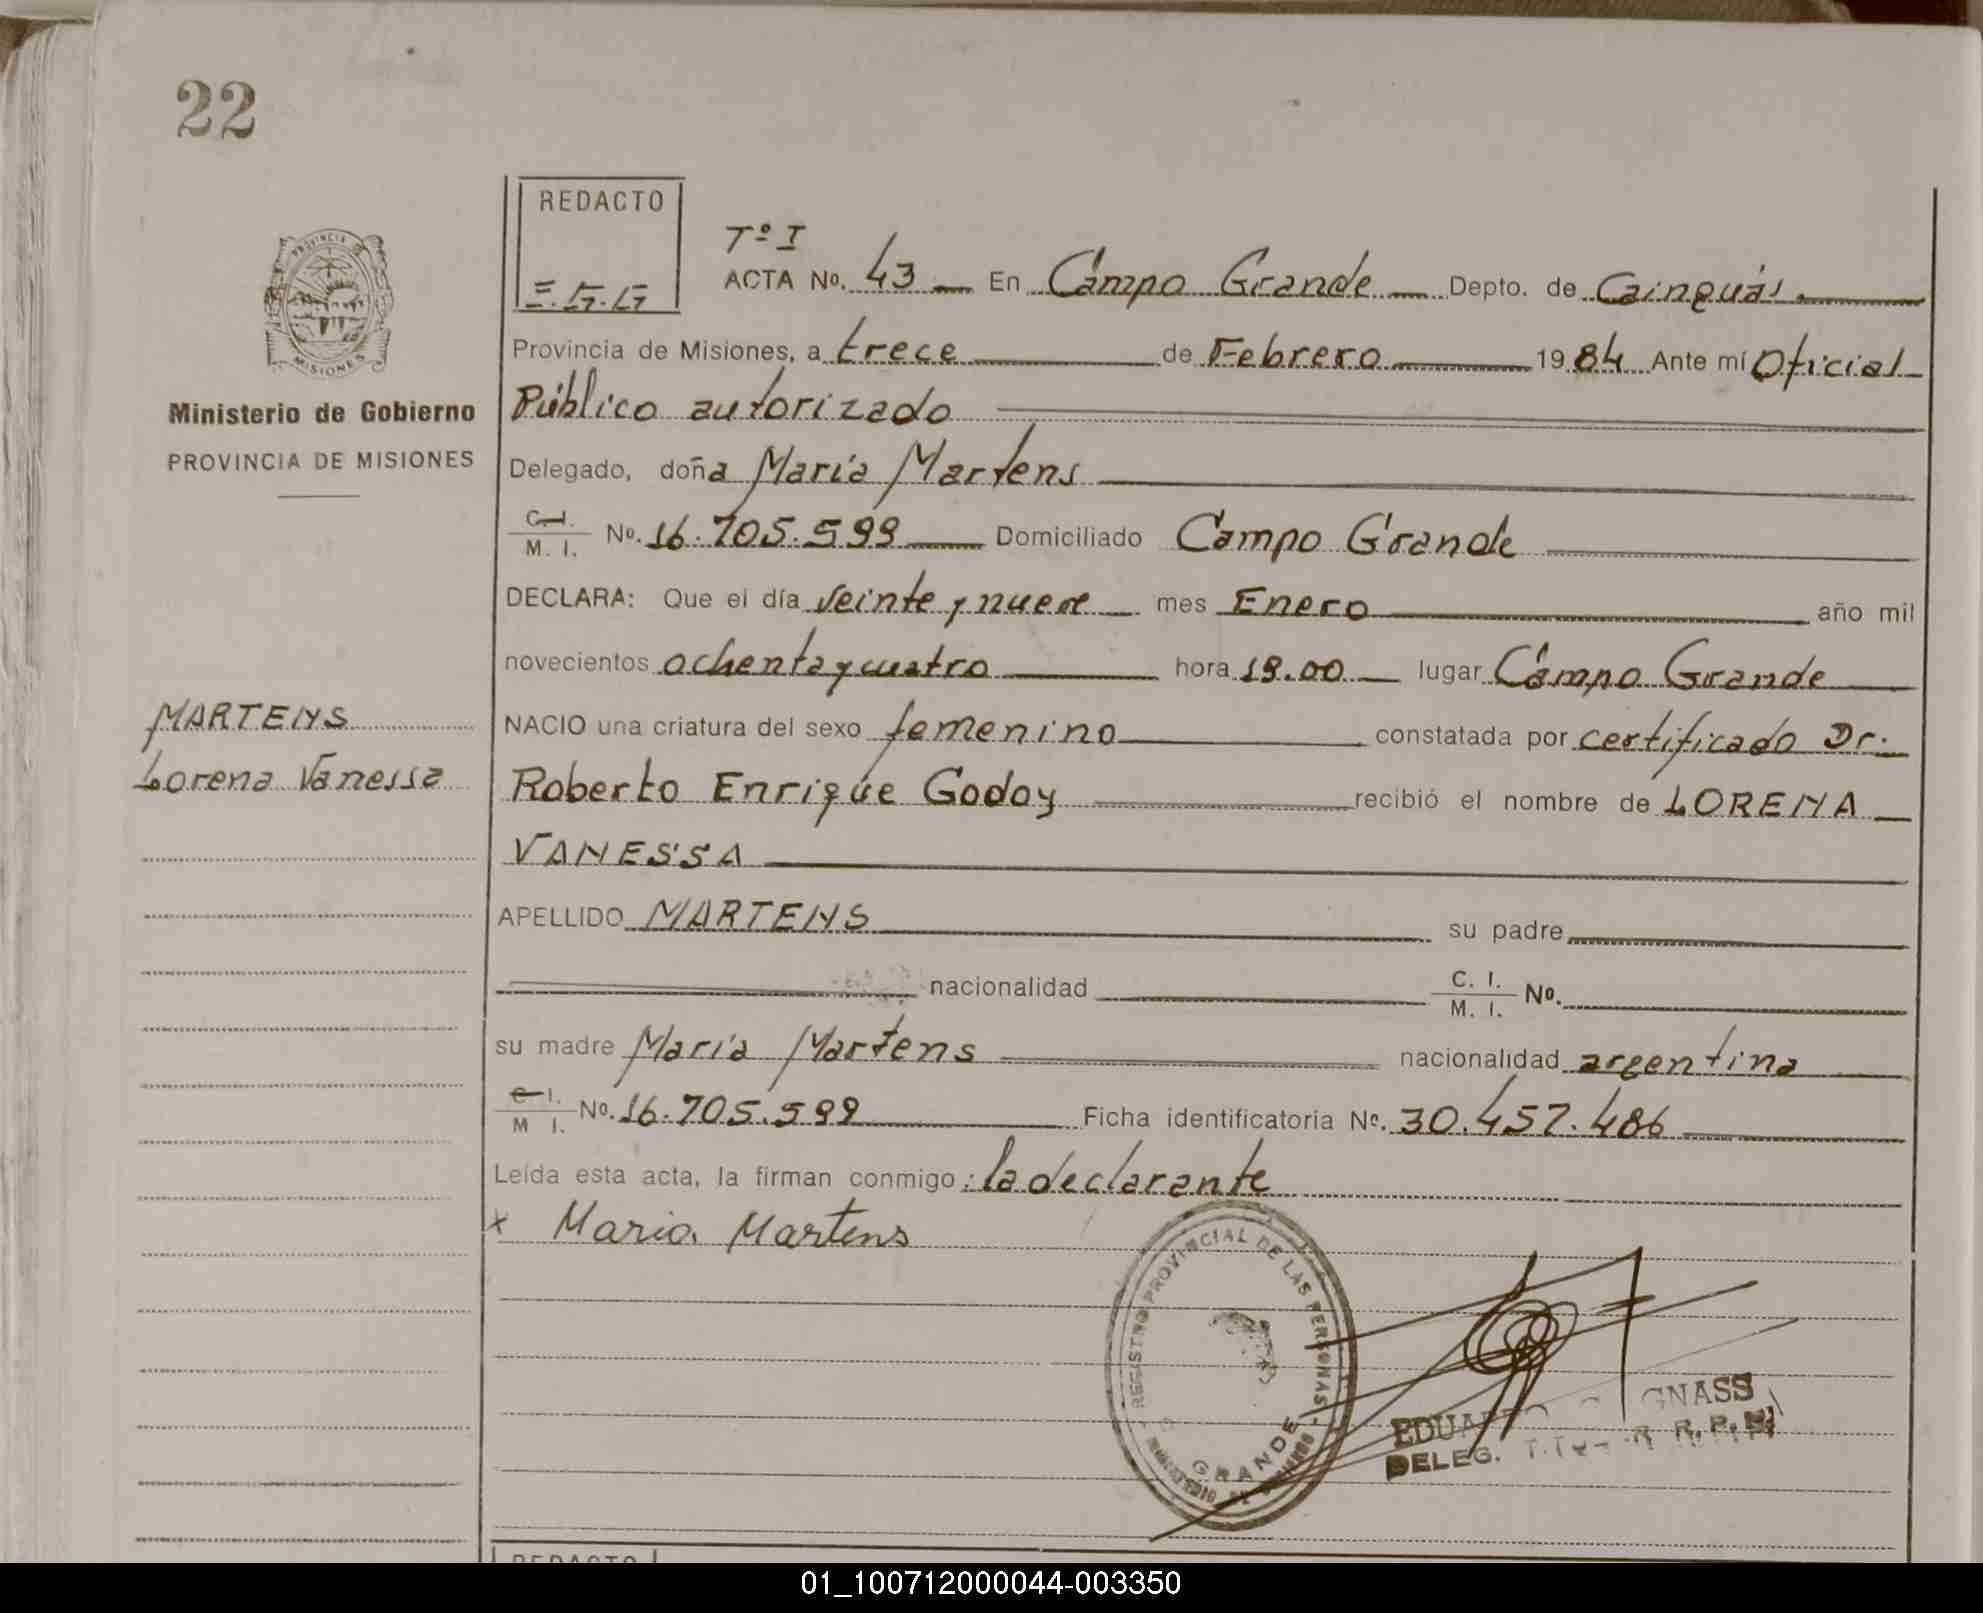 22
REDACTO
E.G.G
Tº I
ACTA No. 43 En Campo Grande Depto. de Cainguás.
Provincia de Misiones, a trece de Febrero 1984 Ante mí Oficial
Público autorizado
PROVINCIA DE MISIONES
Ministerio de Gobierno
PROVINCIA DE MISIONES
Delegado, doña María Martens
C.I. M. I. No. 16.705.599 Domiciliado Campo Grande
DECLARA: Que el día veinte y nueve mes Enero año mil
novecientos ochenta y cuatro hora 19.00 lugar Campo Grande
MARTENS
Lorena Vanessa
NACIO una criatura del sexo femenino constatada por certificado Dr.
Roberto Enrique Godoy recibió el nombre de LORENA
VANESSA
APELLIDO MARTENS su padre
nacionalidad C. I. M. I. No.
su madre María Martens nacionalidad argentina
C I. M I. No. 16.705.599 Ficha identificatoria No. 30.457.486
Leída esta acta, la firman conmigo: la declarante
x Maria Martens
REGISTRO PROVINCIAL DE LAS PERSONAS
GRANDE
EDUARDO GNASS
DELEG. R. P.
REDACTO
01_100712000044-003350